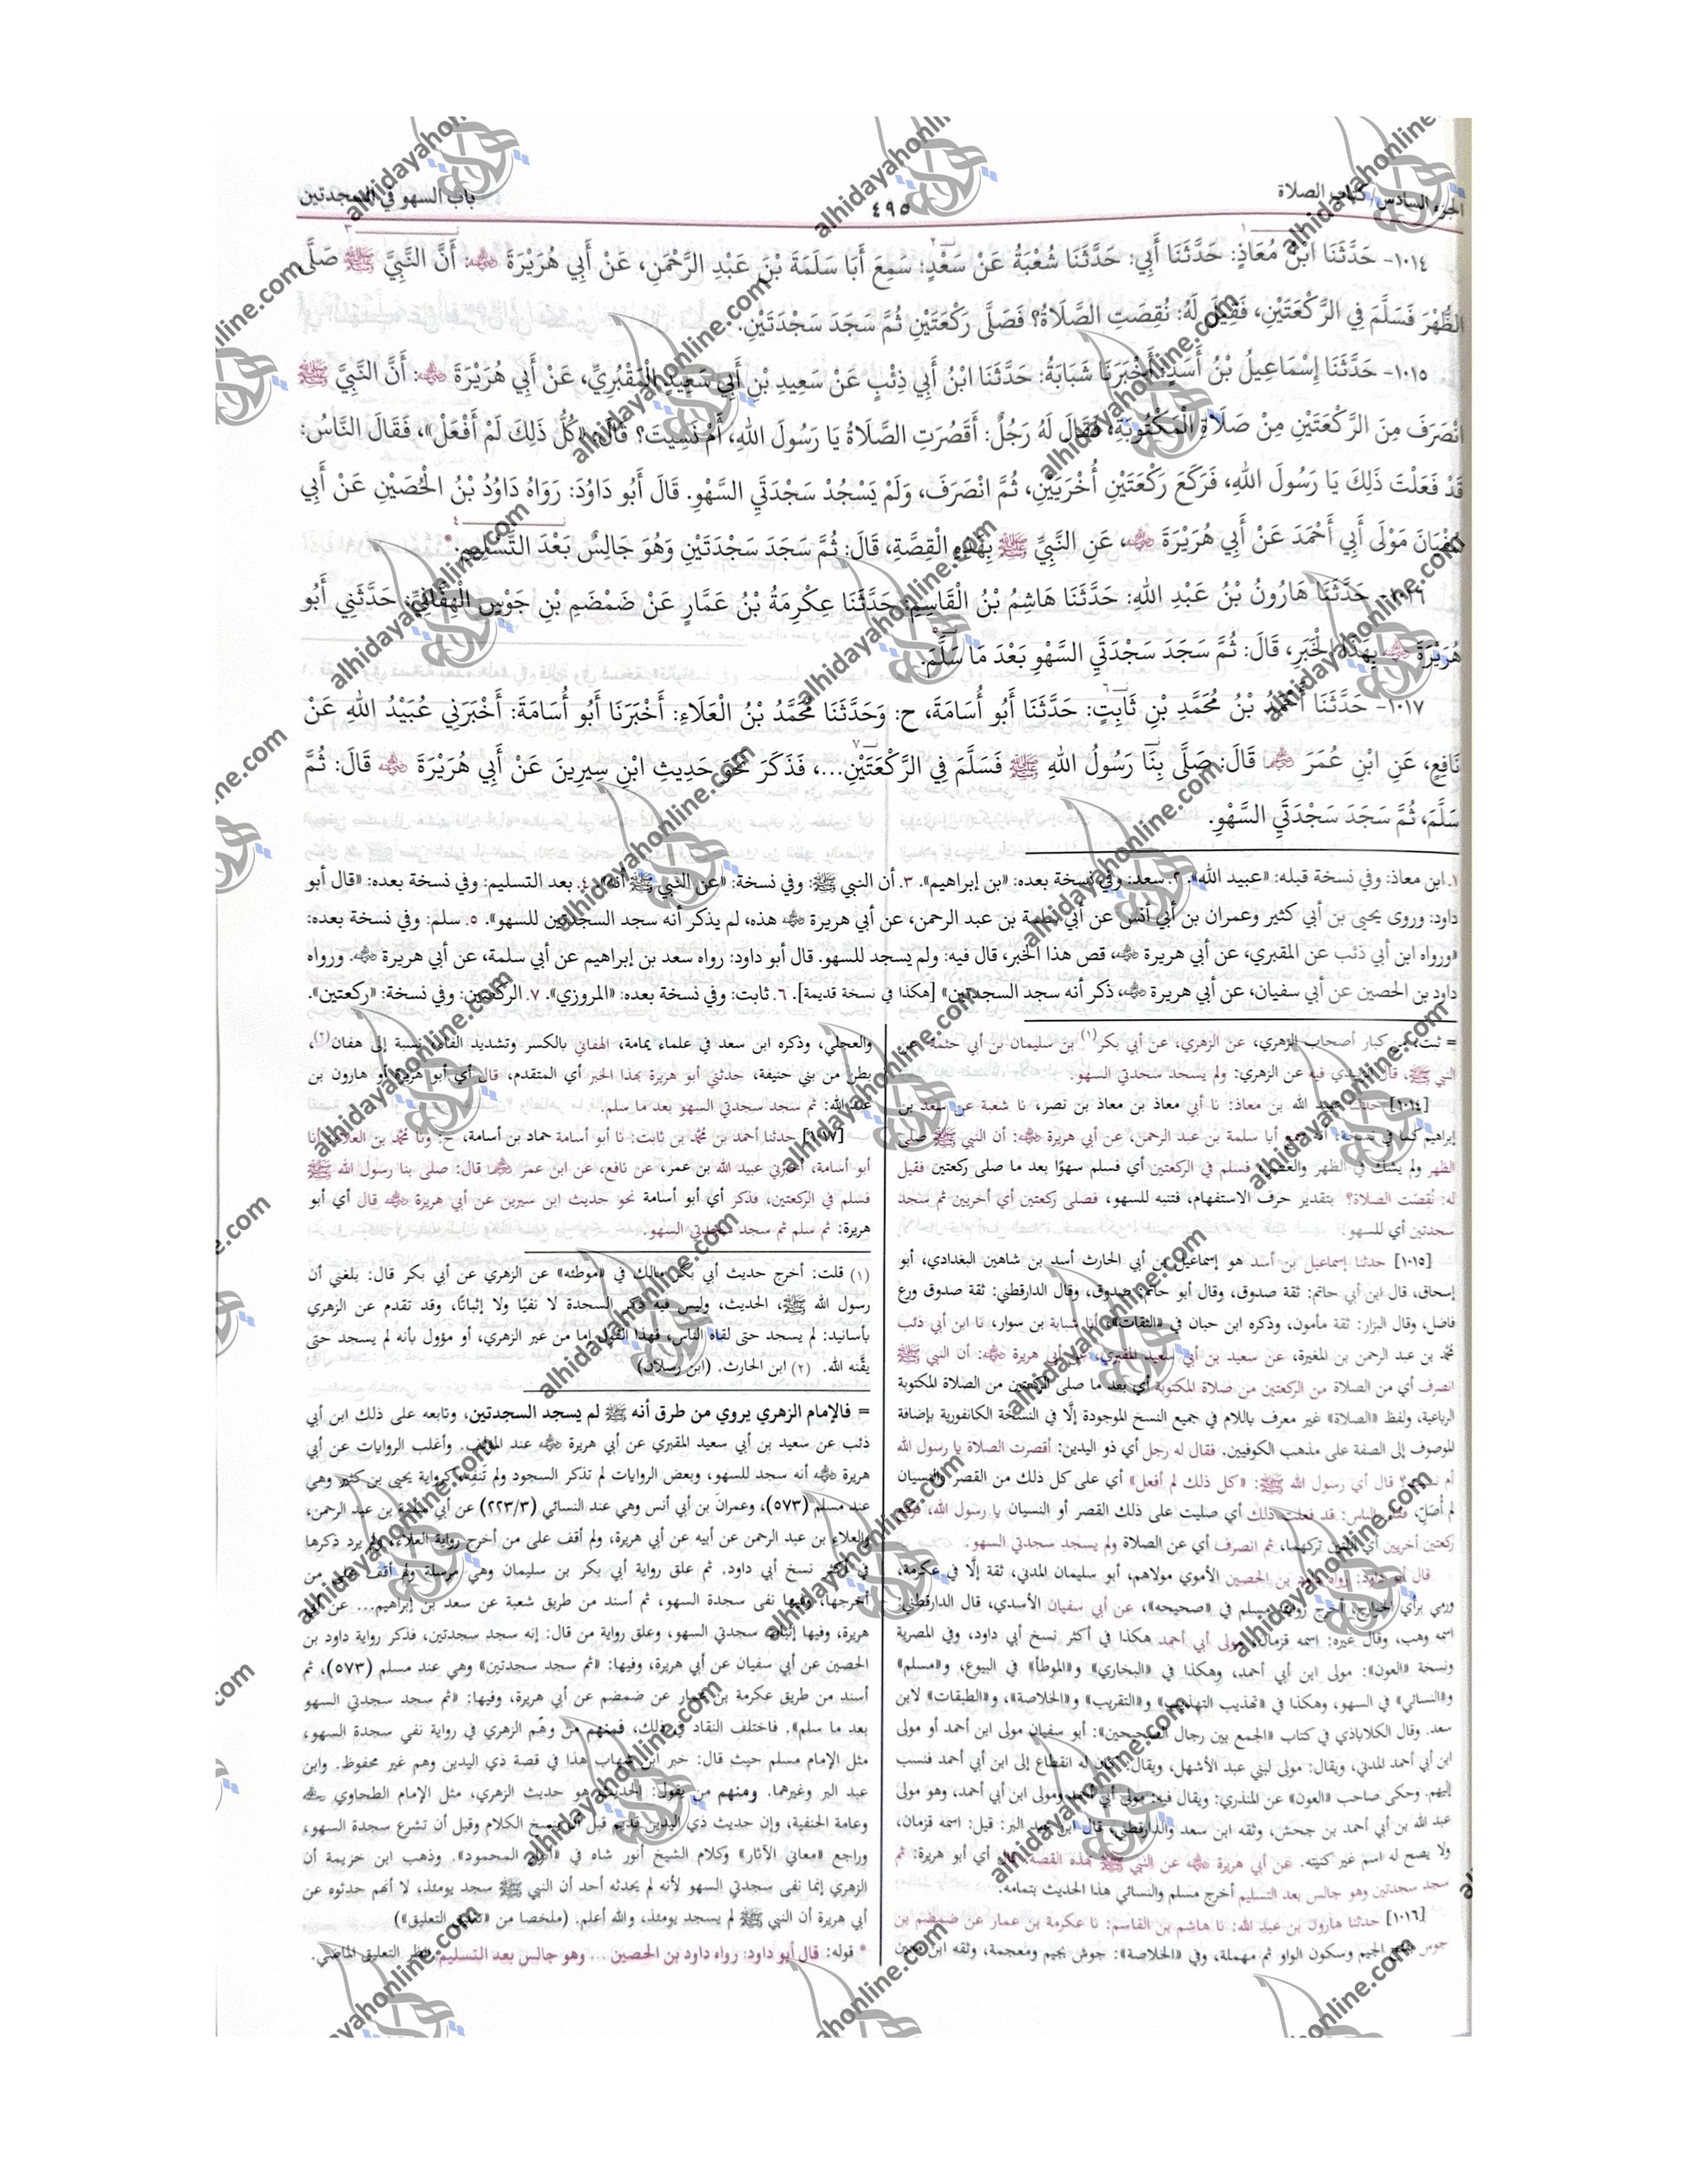 الجزء السادس/ كتاب الصلاة
٤٩٥
باب السهو في السجدتين
١٠١٤- حَدَّثَنَا ابْنُ مُعَاذٍ: حَدَّثَنَا أَبِي: حَدَّثَنَا شُعْبَةُ عَنْ سَعْدٍ: سَمِعَ أَبَا سَلَمَةَ بْنَ عَبْدِ الرَّحْمَنِ، عَنْ أَبِي هُرَيْرَةَ ﷺ: أَنَّ النَّبِيَّ ﷺ صَلَّى
الظُّهْرَ فَسَلَّمَ فِي الرَّكْعَتَيْنِ، فَقِيلَ لَهُ: نُقِصَتِ الصَّلَاةُ؟ فَصَلَّى رَكْعَتَيْنِ ثُمَّ سَجَدَ سَجْدَتَيْنِ.
١٠١٥- حَدَّثَنَا إِسْمَاعِيلُ بْنُ أَسَدٍ: أَخْبَرَنَا شَبَابَةُ: حَدَّثَنَا ابْنُ أَبِي ذِئْبٍ عَنْ سَعِيدِ بْنِ أَبِي سَعِيدٍ الْمَقْبُرِيِّ، عَنْ أَبِي هُرَيْرَةَ: أَنَّ النَّبِيَّ ﷺ
انْصَرَفَ مِنَ الرَّكْعَتَيْنِ مِنْ صَلَاةِ الْمَكْتُوبَةِ، فَقَالَ لَهُ رَجُلٌ: أَقَصُرَتِ الصَّلَاةُ يَا رَسُولَ اللهِ، أَمْ نَسِيتَ؟ قَالَ: «كُلُّ ذَلِكَ لَمْ أَفْعَلْ»، فَقَالَ النَّاسُ:
قَدْ فَعَلْتَ ذَلِكَ يَا رَسُولَ اللهِ، فَرَكَعَ رَكْعَتَيْنِ أُخْرَيَيْنِ، ثُمَّ انْصَرَفَ، وَلَمْ يَسْجُدْ سَجْدَتَيِ السَّهْوِ. قَالَ أَبُو دَاوُدَ: رَوَاهُ دَاوُدُ بْنُ الْحُصَيْنِ عَنْ أَبِي
سُفْيَانَ مَوْلَى أَبِي أَحْمَدَ عَنْ أَبِي هُرَيْرَةَ، عَنِ النَّبِيِّ ﷺ بِهَذِهِ الْقِصَّةِ، قَالَ: ثُمَّ سَجَدَ سَجْدَتَيْنِ وَهُوَ جَالِسٌ بَعْدَ التَّسْلِيمِ.*
١٠١٦- حَدَّثَنَا هَارُونُ بْنُ عَبْدِ اللهِ: حَدَّثَنَا هَاشِمُ بْنُ الْقَاسِمِ: حَدَّثَنَا عِكْرِمَةُ بْنُ عَمَّارٍ عَنْ ضَمْضَمِ بْنِ جَوْسٍ الْهِفَّانِيِّ: حَدَّثَنِي أَبُو
هُرَيْرَةَ بِهَذَا الْخَبَرِ، قَالَ: ثُمَّ سَجَدَ سَجْدَتَيِ السَّهْوِ بَعْدَ مَا سَلَّمَ.
١٠١٧- حَدَّثَنَا أَحْمَدُ بْنُ مُحَمَّدِ بْنِ ثَابِتٍ: حَدَّثَنَا أَبُو أُسَامَةَ، ح: وَحَدَّثَنَا مُحَمَّدُ بْنُ الْعَلَاءِ: أَخْبَرَنَا أَبُو أُسَامَةَ: أَخْبَرَنِي عُبَيْدُ اللهِ عَنْ
نَافِعٍ، عَنِ ابْنِ عُمَرَ قَالَ: صَلَّى بِنَا رَسُولُ اللهِ ﷺ فَسَلَّمَ فِي الرَّكْعَتَيْنِ...، فَذَكَرَ نَحْوَ حَدِيثِ ابْنِ سِيرِينَ عَنْ أَبِي هُرَيْرَةَ قَالَ: ثُمَّ
سَلَّمَ، ثُمَّ سَجَدَ سَجْدَتَيِ السَّهْوِ.
١. ابن معاذ: وفي نسخة قبله: «عبيد الله». ٢. سعد: وفي نسخة بعده: «بن إبراهيم». ٣. أن النبي ﷺ: وفي نسخة: «عن النبي ﷺ أنه». ٤. بعد التسليم: وفي نسخة بعده: «قال أبو
داود: وروى يحيى بن أبي كثير وعمران بن أبي أنس عن أبي سلمة بن عبد الرحمن، عن أبي هريرة هذه، لم يذكر أنه سجد السجدتين للسهو». ٥. سلم: وفي نسخة بعده:
«ورواه ابن أبي ذئب عن المقبري، عن أبي هريرة، قص هذا الخبر، قال فيه: ولم يسجد للسهو. قال أبو داود: رواه سعد بن إبراهيم عن أبي سلمة، عن أبي هريرة. ورواه
داود بن الحصين عن أبي سفيان، عن أبي هريرة، ذكر أنه سجد السجدتين» [هكذا في نسخة قديمة]. ٦. ثابت: وفي نسخة بعده: «المروزي». ٧. الركعتين: وفي نسخة: «ركعتين».
= ثبت من كبار أصحاب الزهري، عن الزهري، عن أبي بكر(١) بن سليمان بن أبي حثمة عن
النبي ﷺ، قال الزبيدي فيه عن الزهري: ولم يسجد سجدتي السهو.
[١٠١٤] حدثنا عبيد الله بن معاذ: نا أبي معاذ بن معاذ بن نصر، نا شعبة عن سعد بن
إبراهيم كما في نسخة: أنه سمع أبا سلمة بن عبد الرحمن، عن أبي هريرة: أن النبي ﷺ صلى
الظهر ولم يشك في الظهر والعصر، فسلم في الركعتين أي فسلم سهوًا بعد ما صلى ركعتين فقيل
له: نُقِصَت الصلاة؟ بتقدير حرف الاستفهام، فتنبه للسهو، فصلى ركعتين أي أخريين ثم سجد
سجدتين أي للسهو.
[١٠١٥] حدثنا إسماعيل بن أسد هو إسماعيل بن أبي الحارث أسد بن شاهين البغدادي، أبو
إسحاق، قال ابن أبي حاتم: ثقة صدوق، وقال أبو حاتم: صدوق، وقال الدارقطني: ثقة صدوق ورع
فاضل، وقال البزار: ثقة مأمون، وذكره ابن حبان في «الثقات»، أنا شبابة بن سوار، نا ابن أبي ذئب
محمد بن عبد الرحمن بن المغيرة، عن سعيد بن أبي سعيد المقبري، عن أبي هريرة: أن النبي ﷺ
انصرف أي من الصلاة من الركعتين من صلاة المكتوبة أي بعد ما صلى الركعتين من الصلاة المكتوبة
الرباعية، ولفظ «الصلاة» غير معرف باللام في جميع النسخ الموجودة إلَّا في النسخة الكانفورية بإضافة
الموصوف إلى الصفة على مذهب الكوفيين. فقال له رجل أي ذو اليدين: أقصرت الصلاة يا رسول الله
أم نسيت؟ قال أي رسول الله ﷺ: «كل ذلك لم أفعل» أي على كل ذلك من القصر والنسيان
لم أُصَلِّ، فقال الناس: قد فعلت ذلك أي صليت على ذلك القصر أو النسيان يا رسول الله، فركع
ركعتين أخريين أي اللتين تركهما، ثم انصرف أي عن الصلاة ولم يسجد سجدتي السهو.
قال أبو داود: رواه داود بن الحصين الأموي مولاهم، أبو سليمان المدني، ثقة إلَّا في عكرمة،
ورمي برأي الخوارج، أخرج روايته مسلم في «صحيحه»، عن أبي سفيان الأسدي، قال الدارقطني:
اسمه وهب، وقال غيره: اسمه قزمان، مولى أبي أحمد هكذا في أكثر نسخ أبي داود، وفي المصرية
ونسخة «العون»: مولى ابن أبي أحمد، وهكذا في «البخاري» و«الموطأ» في البيوع، و«مسلم»
و«النسائي» في السهو، وهكذا في «تهذيب التهذيب» و«التقريب» و«الخلاصة»، و«الطبقات» لابن
سعد. وقال الكلاباذي في كتاب «الجمع بين رجال الصحيحين»: أبو سفيان مولى ابن أحمد أو مولى
ابن أبي أحمد المدني، ويقال: مولى لبني عبد الأشهل، ويقال: كان له انقطاع إلى ابن أبي أحمد فنسب
إليهم. وحكى صاحب «العون» عن المنذري: ويقال فيه: مولى أبي أحمد ومولى ابن أبي أحمد، وهو مولى
عبد الله بن أبي أحمد بن جحش، وثقه ابن سعد والدارقطني، قال ابن عبد البر: قيل: اسمه قزمان،
ولا يصح له اسم غير كنيته. عن أبي هريرة عن النبي ﷺ بهذه القصة، قال أي أبو هريرة: ثم
سجد سجدتين وهو جالس بعد التسليم أخرج مسلم والنسائي هذا الحديث بتمامه.
[١٠١٦] حدثنا هارون بن عبد الله: نا هاشم بن القاسم: نا عكرمة بن عمار عن ضمضم بن
جوس بفتح الجيم وسكون الواو ثم مهملة، وفي «الخلاصة»: جوش بجيم ومعجمة، وثقه ابن معين
والعجلي، وذكره ابن سعد في علماء يمامة، الهفاني بالكسر وتشديد الفاء، نسبة إلى هفان(٢)،
بطن من بني حنيفة، حدثني أبو هريرة بهذا الخبر أي المتقدم، قال أي أبو هريرة أو هارون بن
عبد الله: ثم سجد سجدتي السهو بعد ما سلم.
[١٠١٧] حدثنا أحمد بن محمد بن ثابت: نا أبو أسامة حماد بن أسامة، ح: ونا محمد بن العلاء: أنا
أبو أسامة، أخبرني عبيد الله بن عمر، عن نافع، عن ابن عمر قال: صلى بنا رسول الله ﷺ
فسلم في الركعتين، فذكر أي أبو أسامة نحو حديث ابن سيرين عن أبي هريرة قال أي أبو
هريرة: ثم سلم ثم سجد سجدتي السهو.
(١) قلت: أخرج حديث أبي بكر مالك في «موطئه» عن الزهري عن أبي بكر قال: بلغني أن
رسول الله ﷺ، الحديث، وليس فيه ذكر السجدة لا نفيًا ولا إثباتًا، وقد تقدم عن الزهري
بأسانيد: لم يسجد حتى لقاه الناس، فهذا القول إما من غير الزهري، أو مؤول بأنه لم يسجد حتى
يقَّنه الله. (٢) ابن الحارث. (ابن رسلان)
= فالإمام الزهري يروي من طرق أنه ﷺ لم يسجد السجدتين، وتابعه على ذلك ابن أبي
ذئب عن سعيد بن أبي سعيد المقبري عن أبي هريرة عند المؤلف. وأغلب الروايات عن أبي
هريرة أنه سجد للسهو، وبعض الروايات لم تذكر السجود ولم تنفِه، كرواية يحيى بن كثير وهي
عند مسلم (٥٧٣)، وعمران بن أبي أنس وهي عند النسائي (٢٢٣/٣) عن أبي سلمة بن عبد الرحمن،
والعلاء بن عبد الرحمن عن أبيه عن أبي هريرة، ولم أقف على من أخرج رواية العلاء، ولم يرد ذكرها
في أكثر نسخ أبي داود. ثم علق رواية أبي بكر بن سليمان وهي مرسلة ولم أقف على من
أخرجها، وفيها نفى سجدة السهو، ثم أسند من طريق شعبة عن سعد بن إبراهيم... عن أبي
هريرة، وفيها إثبات سجدتي السهو، وعلق رواية من قال: إنه سجد سجدتين، فذكر رواية داود بن
الحصين عن أبي سفيان عن أبي هريرة، وفيها: «ثم سجد سجدتين» وهي عند مسلم (٥٧٣)، ثم
أسند من طريق عكرمة بن عمار عن ضمضم عن أبي هريرة، وفيها: «ثم سجد سجدتي السهو
بعد ما سلم». فاختلف النقاد في ذلك، فمنهم من وهّم الزهري في رواية نفى سجدة السهو،
مثل الإمام مسلم حيث قال: خبر ابن شهاب هذا في قصة ذي اليدين وهم غير محفوظ. وابن
عبد البر وغيرهما. ومنهم من يقول: الحديث هو حديث الزهري، مثل الإمام الطحاوي
وعامة الحنفية، وإن حديث ذي اليدين قديم قبل أن ينسخ الكلام وقبل أن تشرع سجدة السهو،
وراجع «معاني الآثار» وكلام الشيخ أنور شاه في «أنوار المحمود». وذهب ابن خزيمة أن
الزهري إنما نفى سجدتي السهو لأنه لم يحدثه أحد أن النبي ﷺ سجد يومئذ، لا أنهم حدثوه عن
أبي هريرة أن النبي ﷺ لم يسجد يومئذ، والله أعلم. (ملخصا من التعليق»)
* قوله: قال أبو داود: رواه داود بن الحصين ... وهو جالس بعد التسليم: انظر التعليق الماضي.
alhidayahonline.com